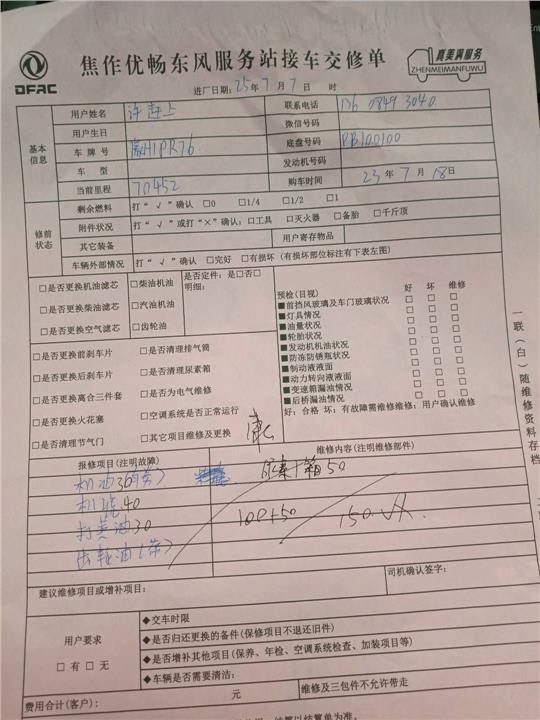 DFAC
焦作优畅东风服务站接车交修单
真美满服务
ZHENMEIMANFUWU
进厂日期：25年7月7日 时
基本信息
用户姓名 许赶上 联系电话 136 0849 3040
用户生日 微信号码
车牌号 豫H1PR76 底盘号码 PB100100
车型 发动机号码
当前里程 70452 购车时间 23年7月18日
修前状态
剩余燃料 打“√”确认 □0 □1/4 □1/2 □1
附件状况 打“√”或打“×”确认：□工具 □灭火器 □备胎 □千斤顶
其它装备 用户寄存物品
车辆外部情况 打“√”确认 □完好 □有损坏（有损坏部位标注有下表左图）
□是否更换机油滤芯 □柴油机油
□是否更换柴油滤芯 □汽油机油
□是否更换空气滤芯 □齿轮油
是否定件：是□否□
明细：
□是否更换前刹车片 □是否清理排气筒
□是否更换后刹车片 □是否清理尿素箱
□是否更换离合三件套 □是否为电气维修
□是否更换火花塞 □空调系统是否正常运行
□是否清理节气门 □其它项目维修及更换
预检（目视） 好 坏 维修
■前挡风玻璃及车门玻璃状况 □ □ □
■灯具情况 □ □ □
■油量状况 □ □ □
■轮胎状况 □ □ □
■发动机机油状况 □ □ □
■防冻防锈瓶状况 □ □ □
■制动液液面 □ □ □
■动力转向液液面 □ □ □
■变速箱漏油情况 □ □ □
■后桥漏油情况 □ □ □
好：合格 坏：有故障需维修维修：用户确认维修
一联（白）随维修资料存档
报修项目（注明故障） 维修内容（注明维修部件）
机油30（带） 尿素箱50
机滤40
打黄油30 100+50 150
齿轮油（带）
建议维修项目或增补项目： 司机确认签字：
用户要求
□有 □无
◆交车时限
◆是否归还更换的备件（保修项目不退还旧件）
◆是否增补其他项目（保养、年检、空调系统检查、加装项目等）
◆车辆是否需要清洁：
费用合计（客户）： 元 维修及三包件不允许带走